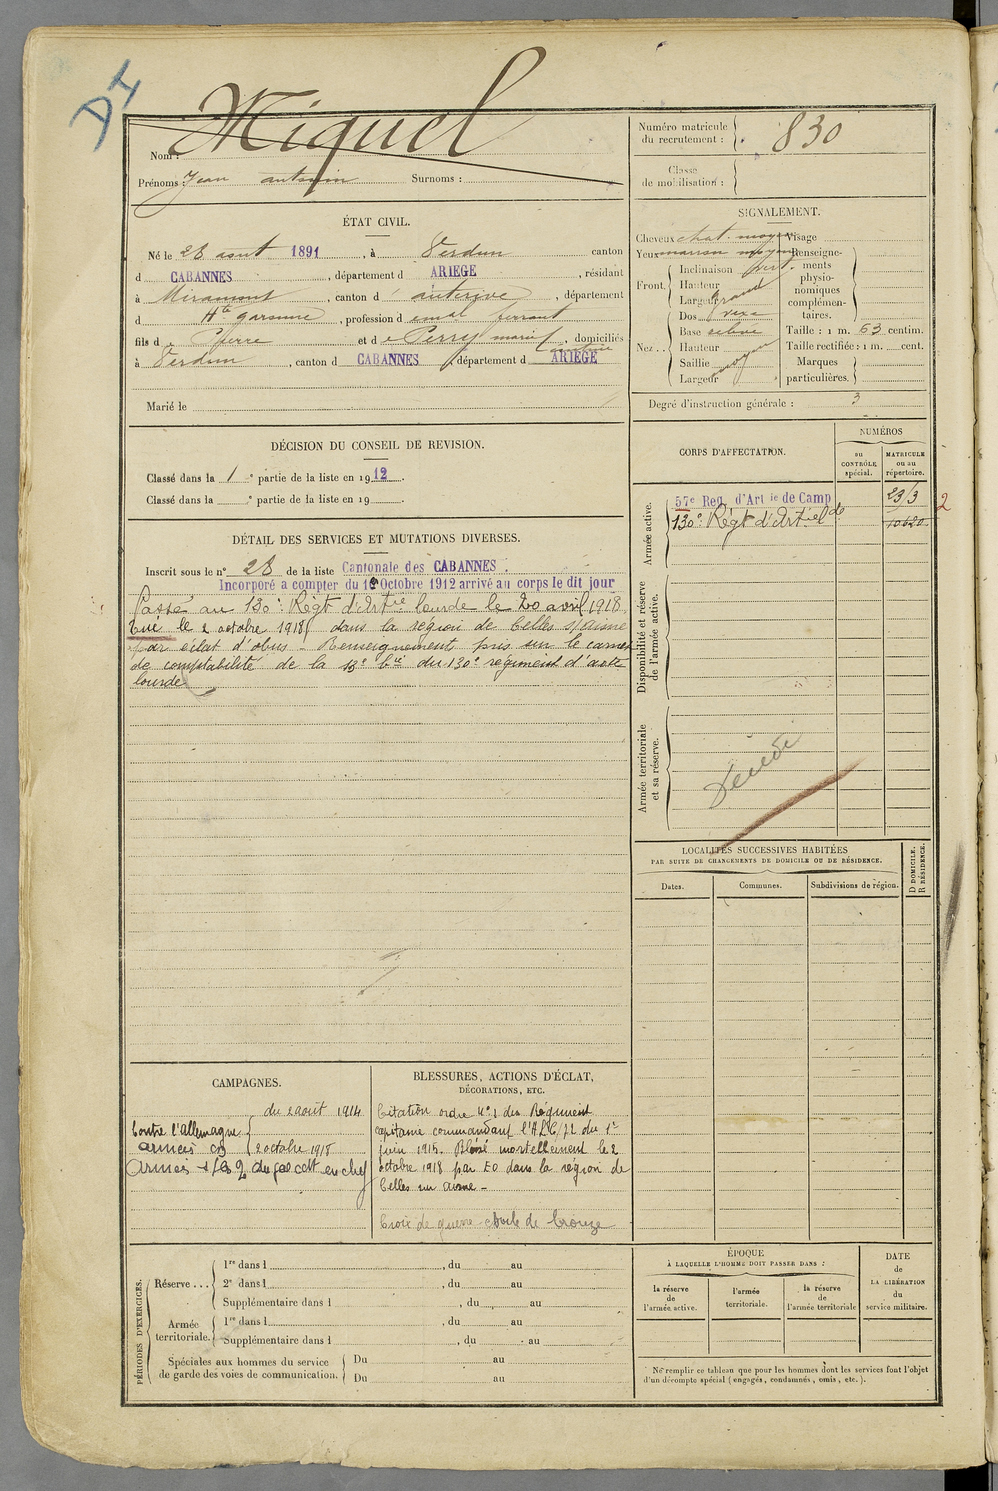 Miquel
Nom :
Prénoms : Jean antonin Surnoms :
Numéro matricule du recrutement : 830
Classe de mobilisation :
ÉTAT CIVIL.
Né le 28 aout 1891, à Verdun canton
d CABANNES, département d ARIEGE, résidant
à Miramont, canton d' auterive, département
d Hte garonne, profession d
fils d Pierre et de Perry marie, domiciliés
à Verdun, canton d CABANNES, département d ARIEGE
Marié le
SIGNALEMENT.
Cheveux chat. moyen
Yeux marron moyen
Front. Inclinaison vert.
Hauteur
Largeur grand
Nez.. Dos vexe
Base
Hauteur
Saillie moyen
Largeur
Visage
Renseignements physionomiques complémentaires.
Taille : 1 m. 63 centim.
Taille rectifiée : 1 m. cent.
Marques particulières.
Degré d'instruction générale : 3
DÉCISION DU CONSEIL DE REVISION.
Classé dans la 1 e partie de la liste en 1912.
Classé dans la e partie de la liste en 19 .
CORPS D'AFFECTATION.
NUMÉROS
au CONTRÔLE spécial.
MATRICULE ou au répertoire.
Armée active.
57e Reg. d'Artie de Camp 23/3 2
130e Régt d'Artie lde 10620
Disponibilité et réserve de l'armée active.
Armée territoriale et sa réserve.
DÉTAIL DES SERVICES ET MUTATIONS DIVERSES.
Inscrit sous le n° 28 de la liste Cantonale des CABANNES.
Incorporé a compter du 10 Octobre 1912 arrivé au corps le dit jour
Passé au 130e Régt d'Artie lourde le 20 avril 1918.
Tué le 2 octobre 1918 dans la région de Celles s/aisne
par éclat d'obus - Renseignements pris sur le carnet
de comptabilité de la 13e bie du 130e régiment d'artie
lourde
Décédé
LOCALITÉS SUCCESSIVES HABITÉES
PAR SUITE DE CHANGEMENTS DE DOMICILE OU DE RÉSIDENCE.
Dates.
Communes.
Subdivisions de région.
D DOMICILE.
R RÉSIDENCE.
CAMPAGNES.
du 2 août 1914
Contre l'allemagne
2 octobre 1918
BLESSURES, ACTIONS D'ÉCLAT,
DÉCORATIONS, ETC.
Citation ordre N°1 du Régiment
capitaine commandant l'ALG/72 du 1er
juin 1915. Blessé mortellement le 2
octobre 1918 par EO dans la région de
Celles sur aisne -
Croix de guerre étoile de bronze
PÉRIODES D'EXERCICES.
Réserve ...
1re dans l , du au
2e dans l , du au
Supplémentaire dans l , du au
Armée territoriale.
1re dans l , du au
Supplémentaire dans l , du au
Spéciales aux hommes du service de garde des voies de communication.
Du au
Du au
ÉPOQUE
À LAQUELLE L'HOMME DOIT PASSER DANS :
la réserve de l'armée active.
l'armée territoriale.
la réserve de l'armée territoriale
DATE de LA LIBÉRATION du service militaire.
Ne remplir ce tableau que pour les hommes dont les services font l'objet
d'un décompte spécial (engagés, condamnés, omis, etc.).